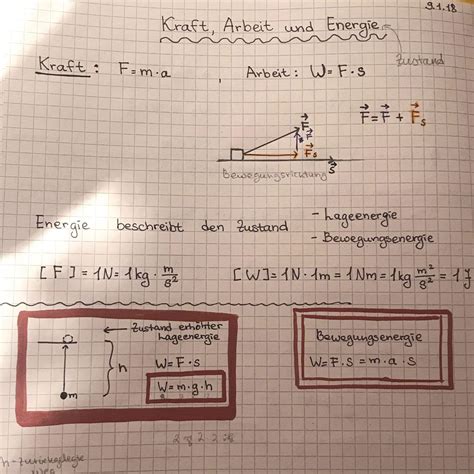 9.1.18
Kraft, Arbeit und Energie
Zustand
Kraft: F=m·a , Arbeit: W=F·s
F
F
F_s
s
Bewegungsrichtung
F = F + F_s
Energie beschreibt den Zustand
- Lageenergie
- Bewegungsenergie
[F] = 1N = 1kg · m/s²
[W] = 1N · 1m = 1Nm = 1kg m²/s² = 1J
Zustand erhöhter
Lageenergie
h
m
W=F·s
W=m·g·h
Bewegungsenergie
W=F·s = m·a·s
h - zurückgelegte
Weg